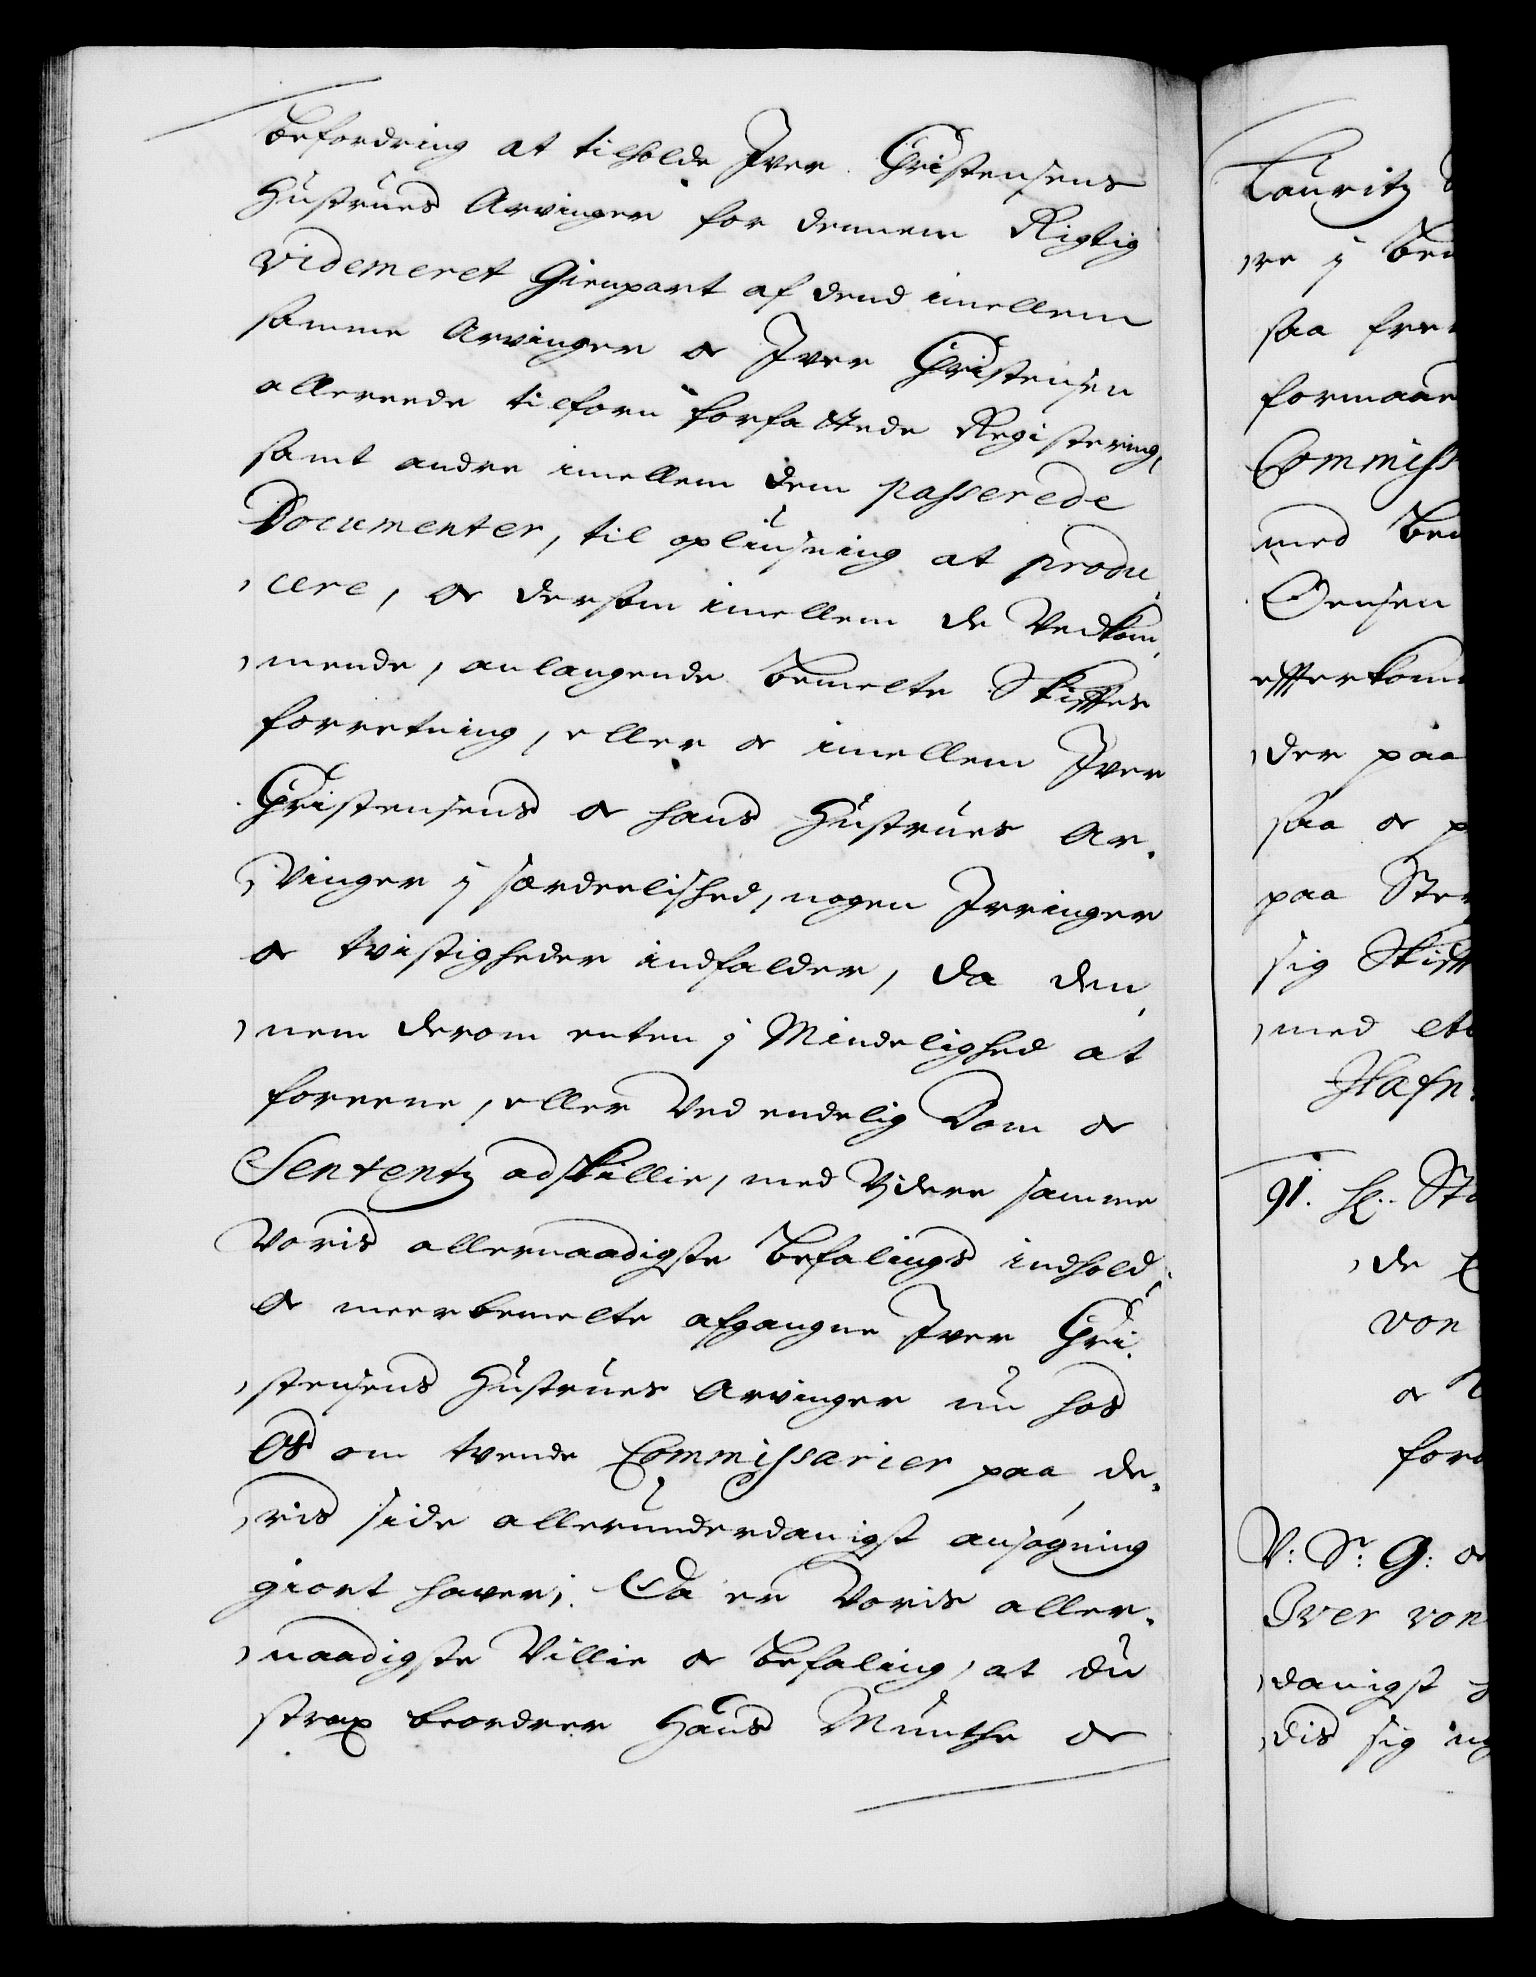 Befordring at tilholde Iver Christensens
Hustrues Arvinger for dennem Rigtig
videmeret Gienpart af dend imellem
samme Arvinger og Iver Christensen
allereede tilforn forfattede Registering,
samt andre imellem dem passerede
Documenter, til oplüsning at produ¬
cere, og dersom imellem de Vedkom¬
mende, anlangende bemelte Skifftes
forretning, eller og imellem Iver
Christensens og hans Hustrues Ar¬
vinger j særdeelished, nogen Irringer
og tvistigheder indfalder, da den¬
nem derom enten j Mindelighed at
foreene, eller Ved endelig Dom og
Sententz adskillie, med Videre samme
Voris allernaadigste befalings indhold.
Og meerbemelte afgangne Iver Chri¬
stensens Hustrues Arvinger nu hos
Os om tvende Commissarier paa de¬
ris side allerunderdanigst ansøgning
giort haver; Da er Voris aller¬
naadigste Villie og befaling, at du
strax beordrer Hans Munthe og
Lauritz
re j
saa
formaae
Commiss
med
Ovensen
effterkom
der paa
saa og
paa
sig Skifft
med
Hafn:
91.
de
von
og
for
V: Sr: G: og
Iver von
danigst
dis sig